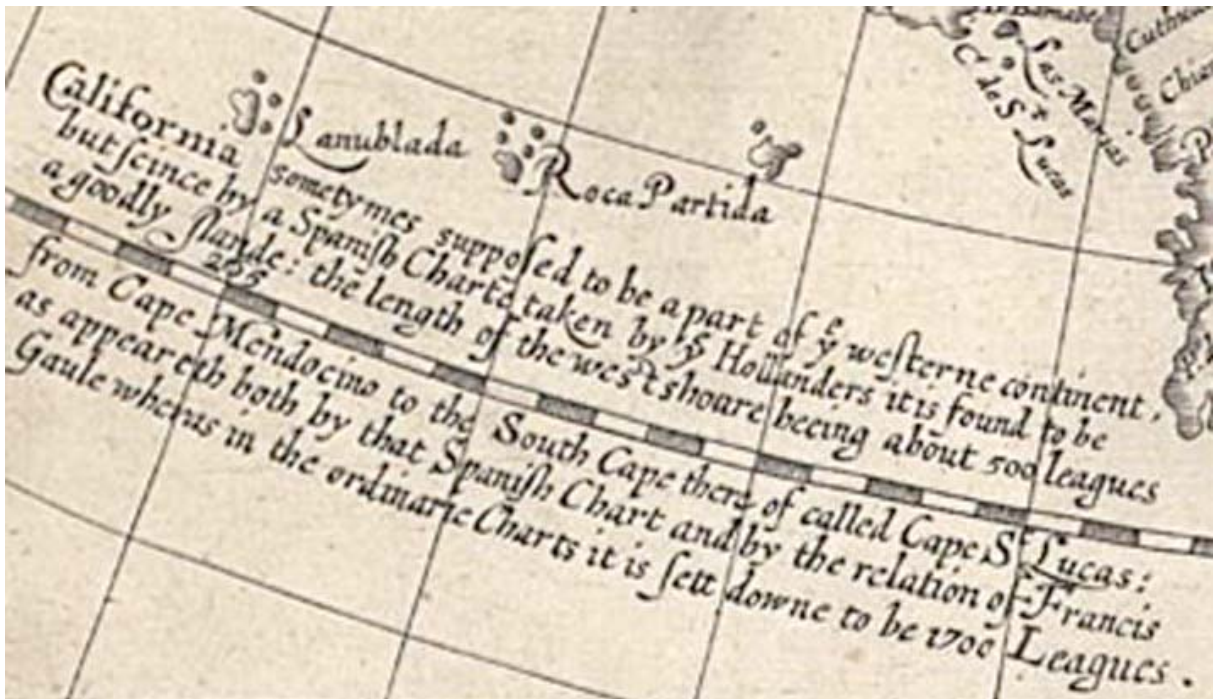 California sometymes supposed to be a part of yᵉ westerne continent,
but scince by a Spanish Charte taken by yᵉ Hollanders it is found to be
a goodly Ilande: the length of the west shoare beeing about 500 leagues
from Cape Mendocino to the South Cape there of called Cape Sᵗ Lucas:
as appeareth both by that Spanish Chart and by the relation of Francis
Gaule wheras in the ordinarie Charts it is sett downe to be 1700 Leagues.
Lanublada
Roca Partida
C. de Sᵗ Lucas
Las Marias
Chia